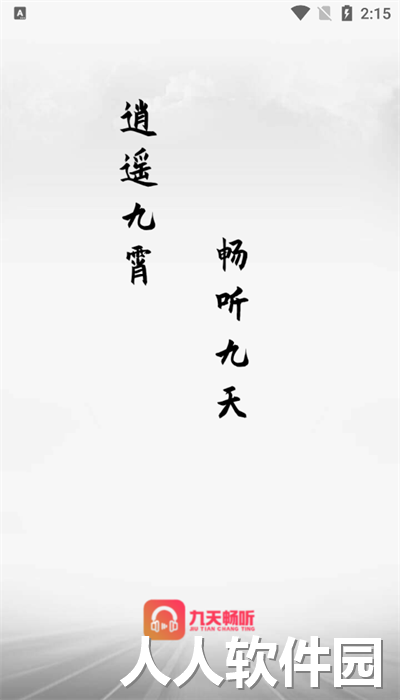 2:15
逍遥九霄
畅听九天
九天畅听
JIU TIAN CHANG TING
人人软件园